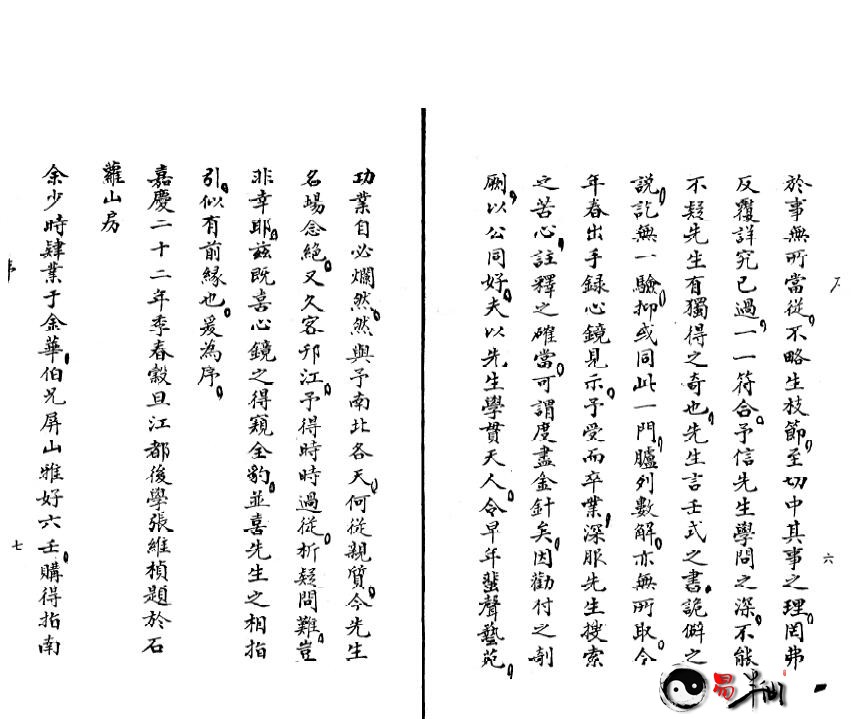 於事無所當從，不略生枝節，至切中其事之理，罔弗
反覆詳究已過，一一符合。予信先生學問之深，不能
不疑先生有獨得之奇也。先生言壬式之書，詭僻之
說，訖無一驗，抑或同此一門，臚列數解，亦無所取。今
年春出手錄心鏡見示，予受而卒業，深服先生搜索
之苦心，註釋之確當，可謂度盡金針矣。因勸付之剞
劂，以公同好。夫以先生學貫天人，令早年蜚聲藝苑，
六
功業自必爛然。然與予南北各天，何從親質。今先生
名場念絕，又久客邗江，予得時時過從，析疑問難，豈
非幸耶。茲既喜心鏡之得窺全豹，並喜先生之相指
引，似有前緣也。爰為序。
嘉慶二十二年季春穀旦江都後學張維楨題於石
蘿山房
余少時肄業于金華，伯兄屏山雅好六壬，購得指南
七
易